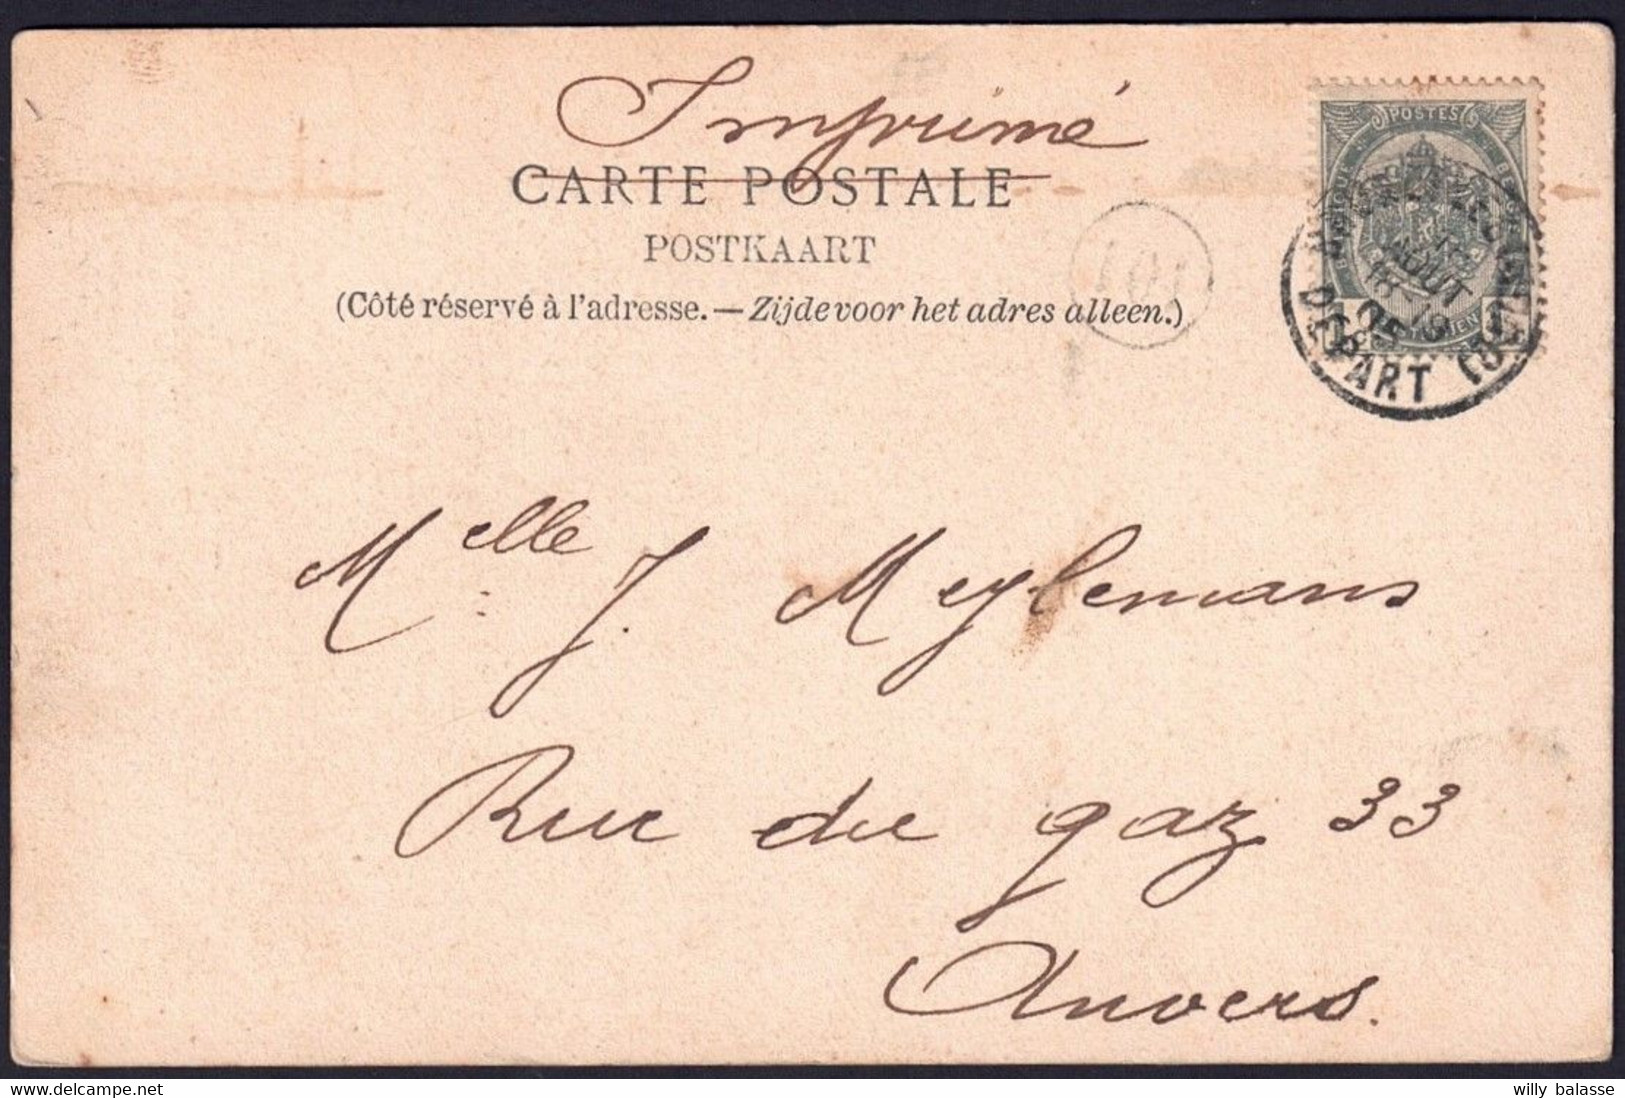 Imprimé
CARTE POSTALE
POSTKAART
(Côté réservé à l'adresse. — Zijde voor het adres alleen.)
101
POSTES
AOUT
18-19
05
DEPART
Melle J. Meylemans
Rue du gaz 33
Anvers.
willy balasse